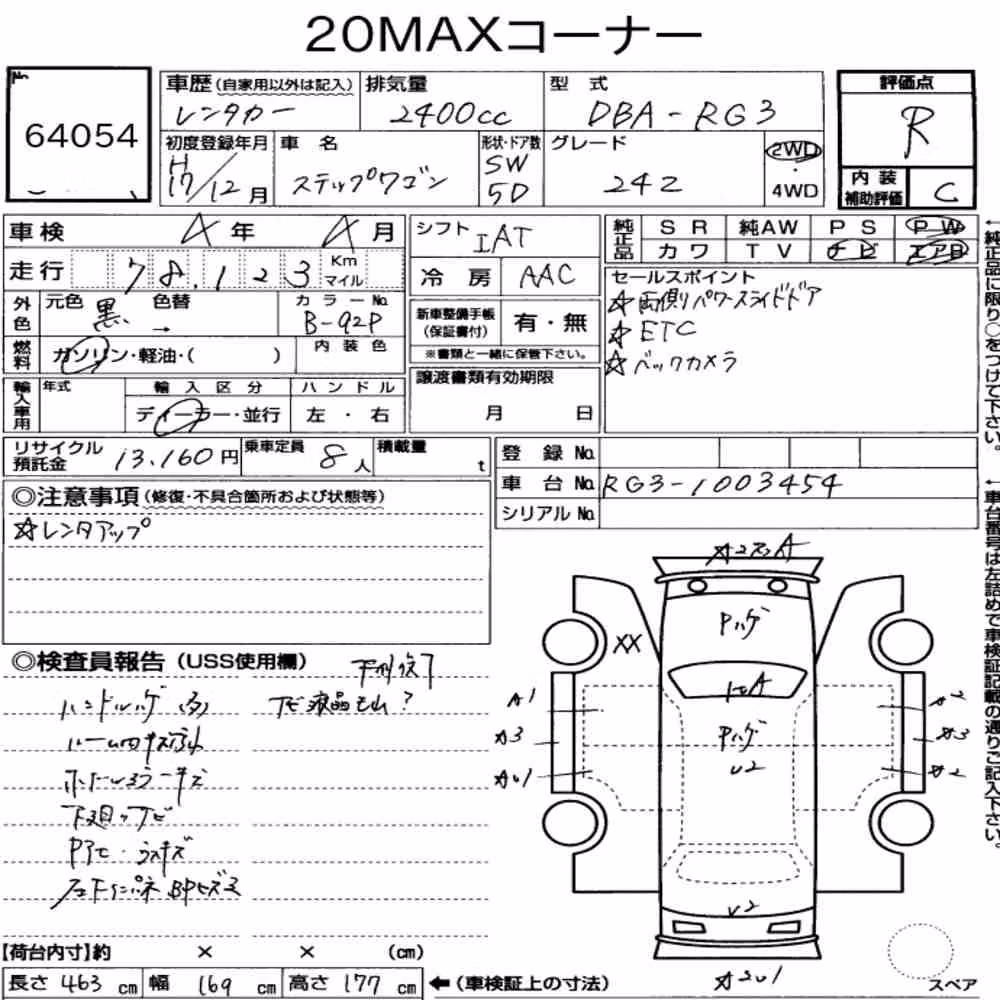 20MAXコーナー
No.
64054
車歴(自家用以外は記入) 排気量 型式
レンタカー 2400cc DBA-RG3
評価点
R
初度登録年月 車名 形状・ドア数 グレード
H17/12月 ステップワゴン SW 5D 24Z
2WD・4WD
内装補助評価 C
車検 年 月
走行 78,123 Km マイル
シフト IAT
冷房 AAC
純正品 SR 純AW PS PW
カワ TV ナビ エアB
外色 元色 黒 色替 → カラーNo. B-92P
燃料 ガソリン・軽油・( ) 内装色
新車整備手帳(保証書付) 有・無
※書類と一緒に保管下さい。
セールスポイント
☆両側パワースライドドア
☆ETC
☆バックカメラ
輸入車用 年式 輸入区分 ハンドル
ディーラー・並行 左・右
譲渡書類有効期限
月 日
リサイクル預託金 13,160円 乗車定員 8人 積載量 t
登録No.
車台No. RG3-1003454
シリアルNo.
◎注意事項(修復・不具合箇所および状態等)
☆レンタアップ
◎検査員報告(USS使用欄)
ナビ液晶モレ?
A
XX
Pハゲ
A
A1
A3
Pハゲ
U2
A2
A3
A2
U2
【荷台内寸】約 × × (cm)
長さ 463 cm 幅 169 cm 高さ 177 cm ←(車検証上の寸法)
スペア
←純正品に限り○をつけて下さい。
←車台番号は左詰めで車検証記載の通りご記入下さい。